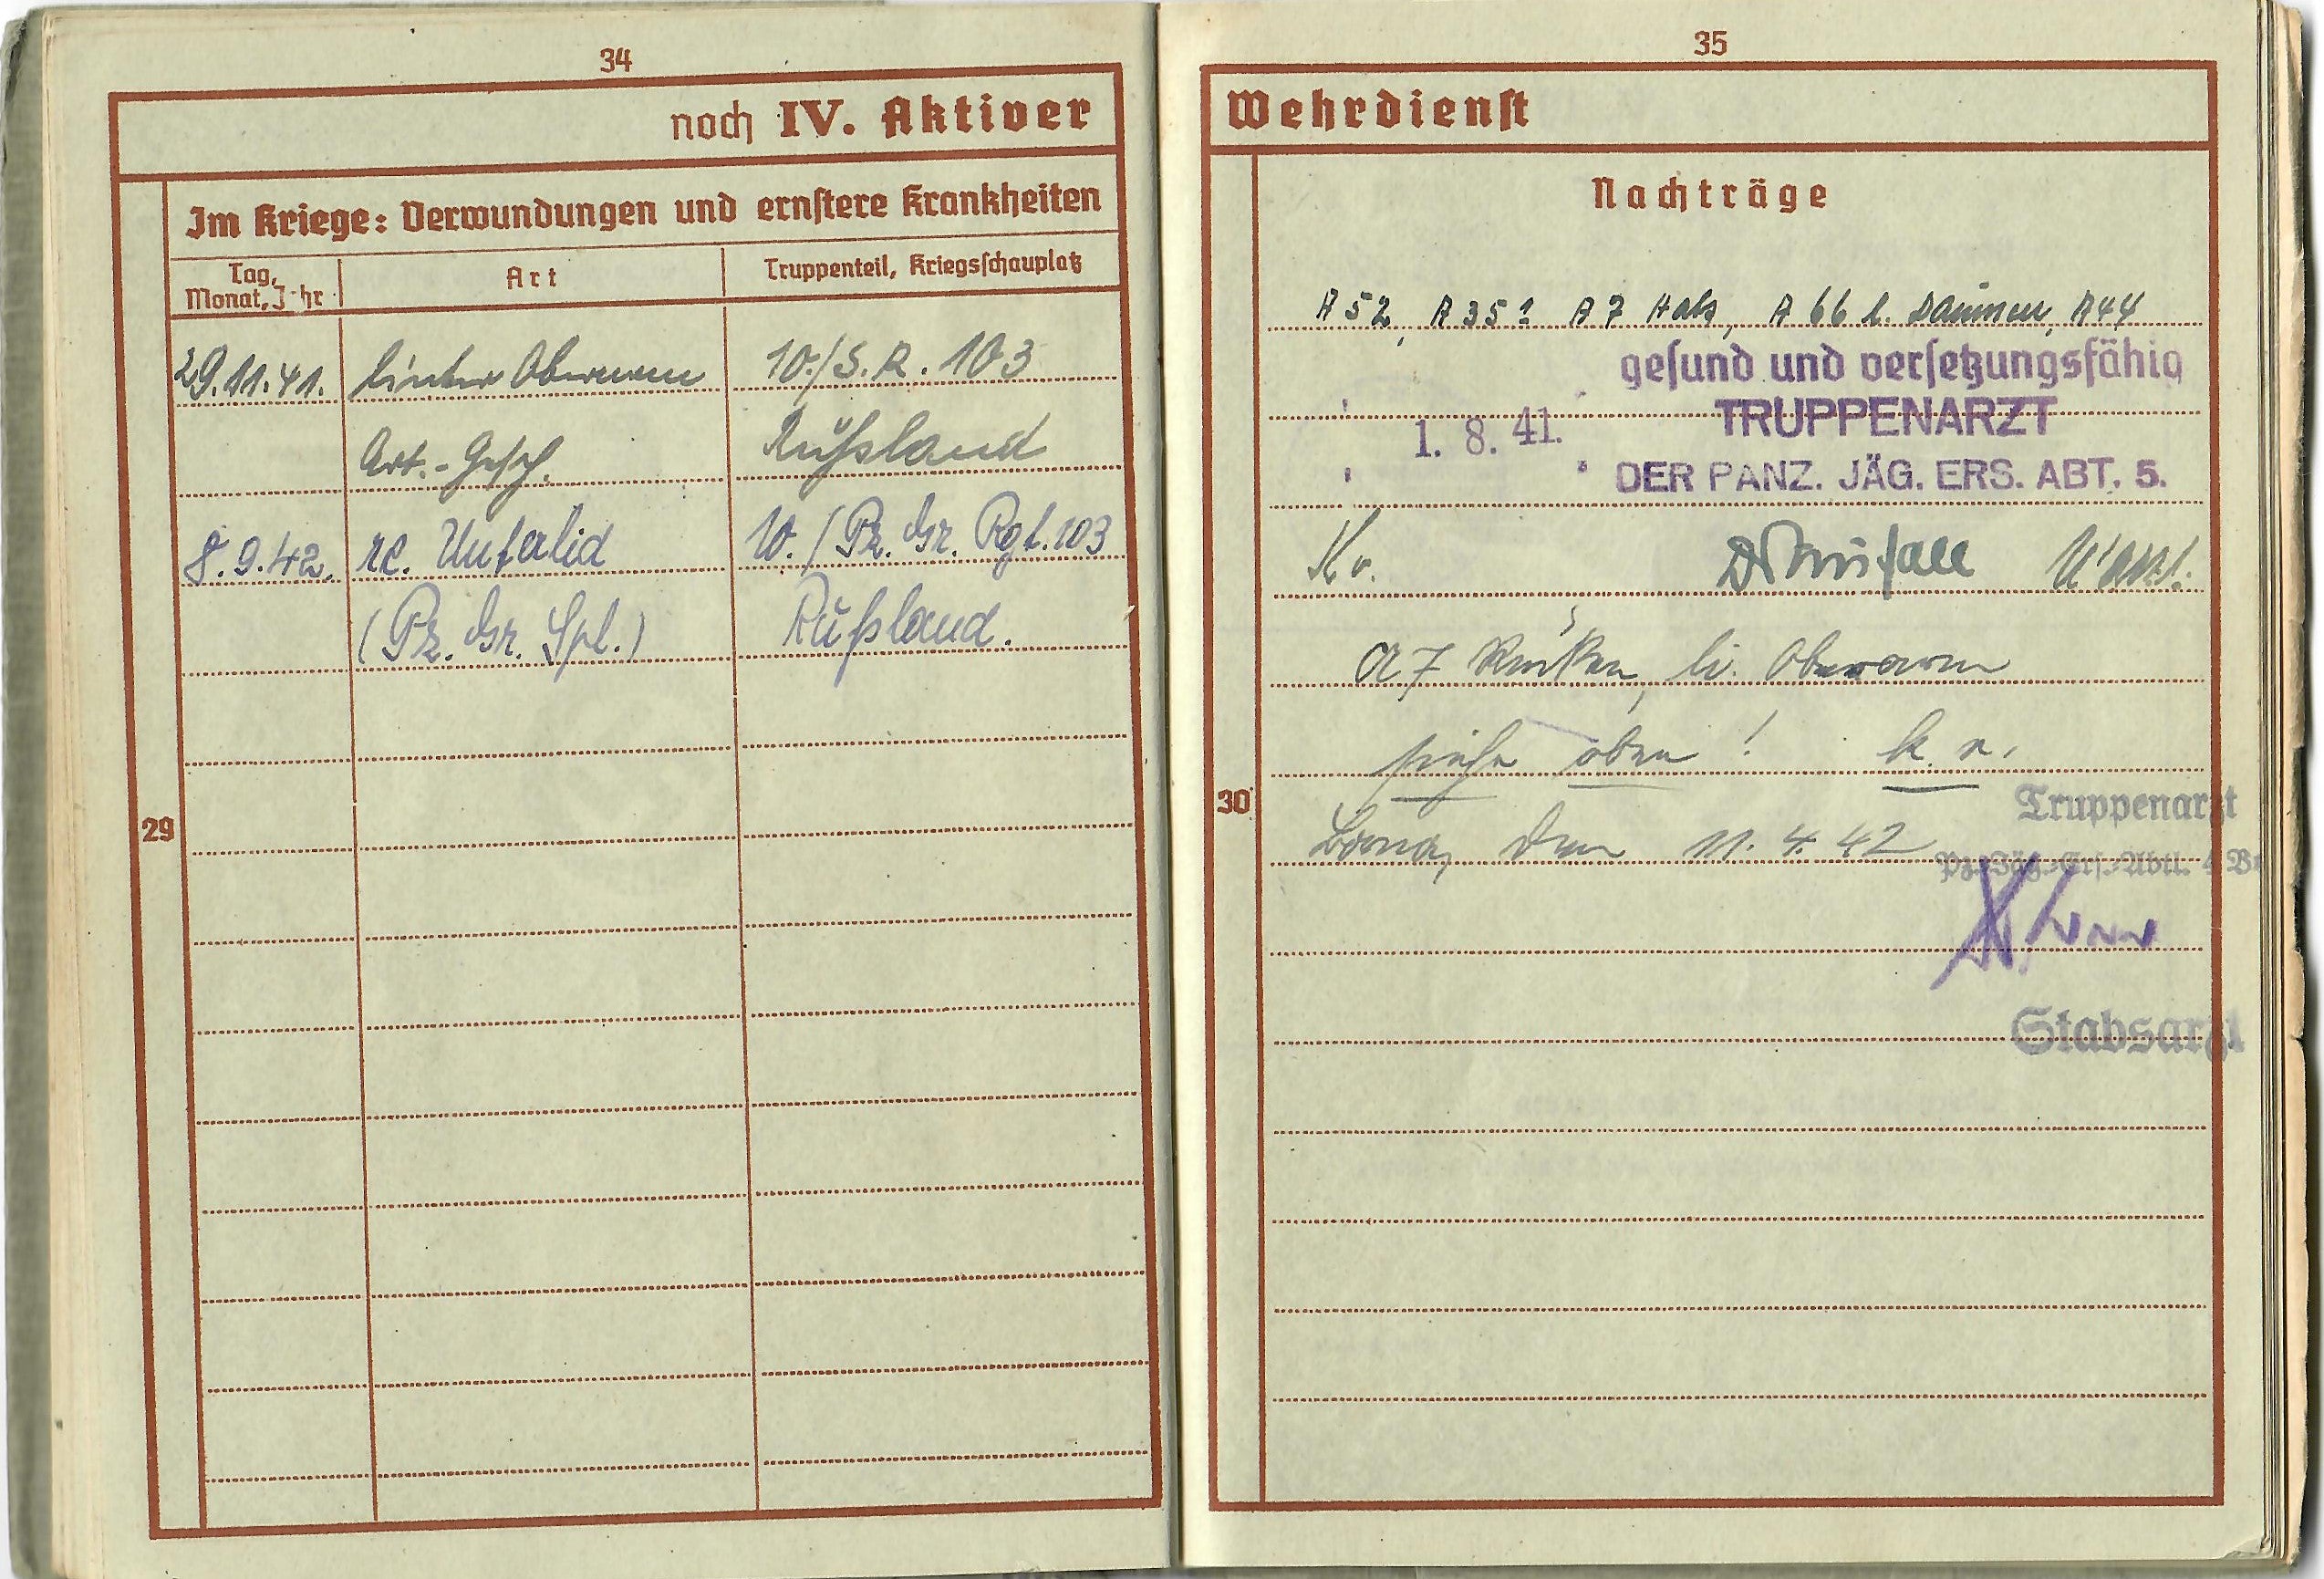 34
noch IV. Aktiver
Im Kriege: Verwundungen und ernstere Krankheiten
Tag, Monat, J hr
Art
Truppenteil, Kriegsschauplatz
29.11.41. linker Oberarm 10./S.R. 103
Art.-Gesch. Rußland
8.9.42. re. Unterlid 10./Pz. Gr. Rgt. 103
(Pz. Gr. Spl.) Rußland.
29
35
Wehrdienst
Nachträge
A 52, A 35? A 7 Hals, A 66 l. Daumen, A 44
gesund und versetzungsfähig
1. 8. 41. TRUPPENARZT
DER PANZ. JÄG. ERS. ABT. 5.
Kv. U'arzt.
A 7 Rücken, li. Oberarm
siehe oben! k.v.
30
Truppenarzt
Borna, den 11.4.42
Pz.-Jäg.-Ers.-Abtl. 4 B
Stabsarzt